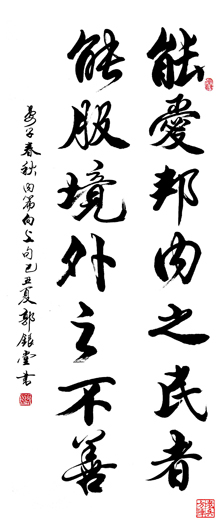 能愛邦內之民者
能服境外之不善
晏子春秋內篇問上句己丑夏郭銀堂書